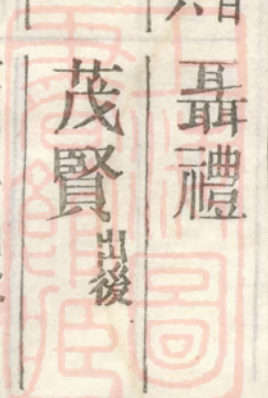 聶禮
茂賢出後